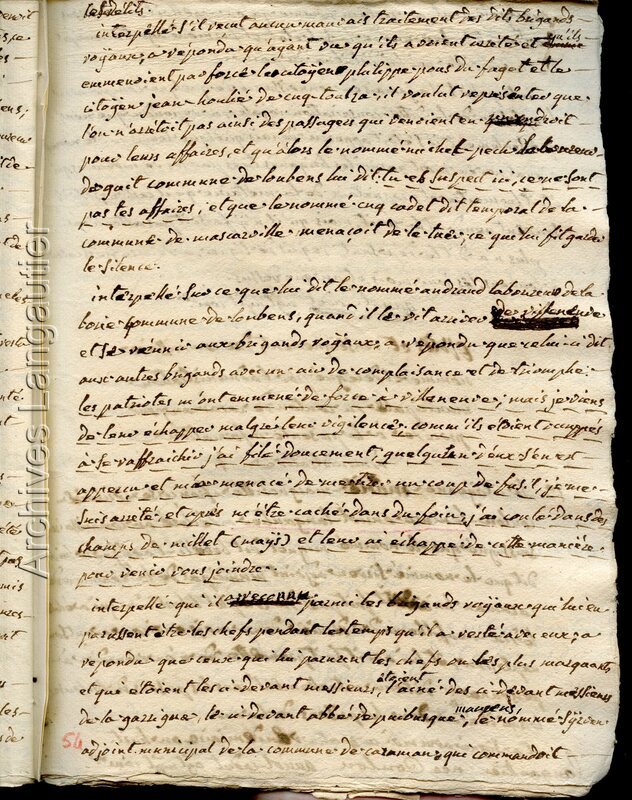 les délits.
interpellé s'il recut aucun mauvais traitement des dits brigands
royaux, a repondu qu'ayant vu qu'ils avoient arrêté et qu'ils
emmenoient par force le citoyen philippe pons du faget et le
citoyen jean houlié de cuq-toulza, il voulut représenter que
l'on n'arrêtoit pas ainsi des passagers qui venoient en
pour leurs affaires, et qu'alors le nommé michel pech laboureur
de guit commune de loubens lui dit, tu es suspect ici, ce ne sont
pas tes affaires; et que le nommé cuq cadet dit temporal de la
commune de mascarville menaçoit de le tuer, ce qui lui fit garder
le silence.
interpellé sur ce que lui dit le nommé andrand laboureur de la
borie commune de loubens, quand il le vit arriver
et se réunir aux brigands royaux, a répondu que celui-ci dit
aux autres brigands avec un air de complaisance et de triomphe
les patriotes m'ont emmené de force à villeneuve, mais je viens
de leur échapper malgré leur vigilence, comm'ils étoient occuppés
à se raffraichir j'ai filé doucement, quelqu'un d'eux s'en est
apperçu et m'a menacé de me tirer un coup de fusil, je me
suis arrêté, et après m'être caché dans du foin, j'ai coulé dans des
champs de millet (mays) et leur ai échappé de cette manière
pour venir vous joindre.
interpellé qui il parmi les brigands royaux qui lui en
parussent être les chefs pendant le temps qu'il a resté avec eux, a
répondu que ceux qui lui parurent les chefs ou les plus marquants
et qui etoient les ci-devant messieurs, étoient l'ainé des ci-devant messieurs
de la garrigue, le ci-devant abbé de puibusque, maurens, le nommé
adjoint municipal de la commune de caraman, qui commandoit
54
Archives Langautier